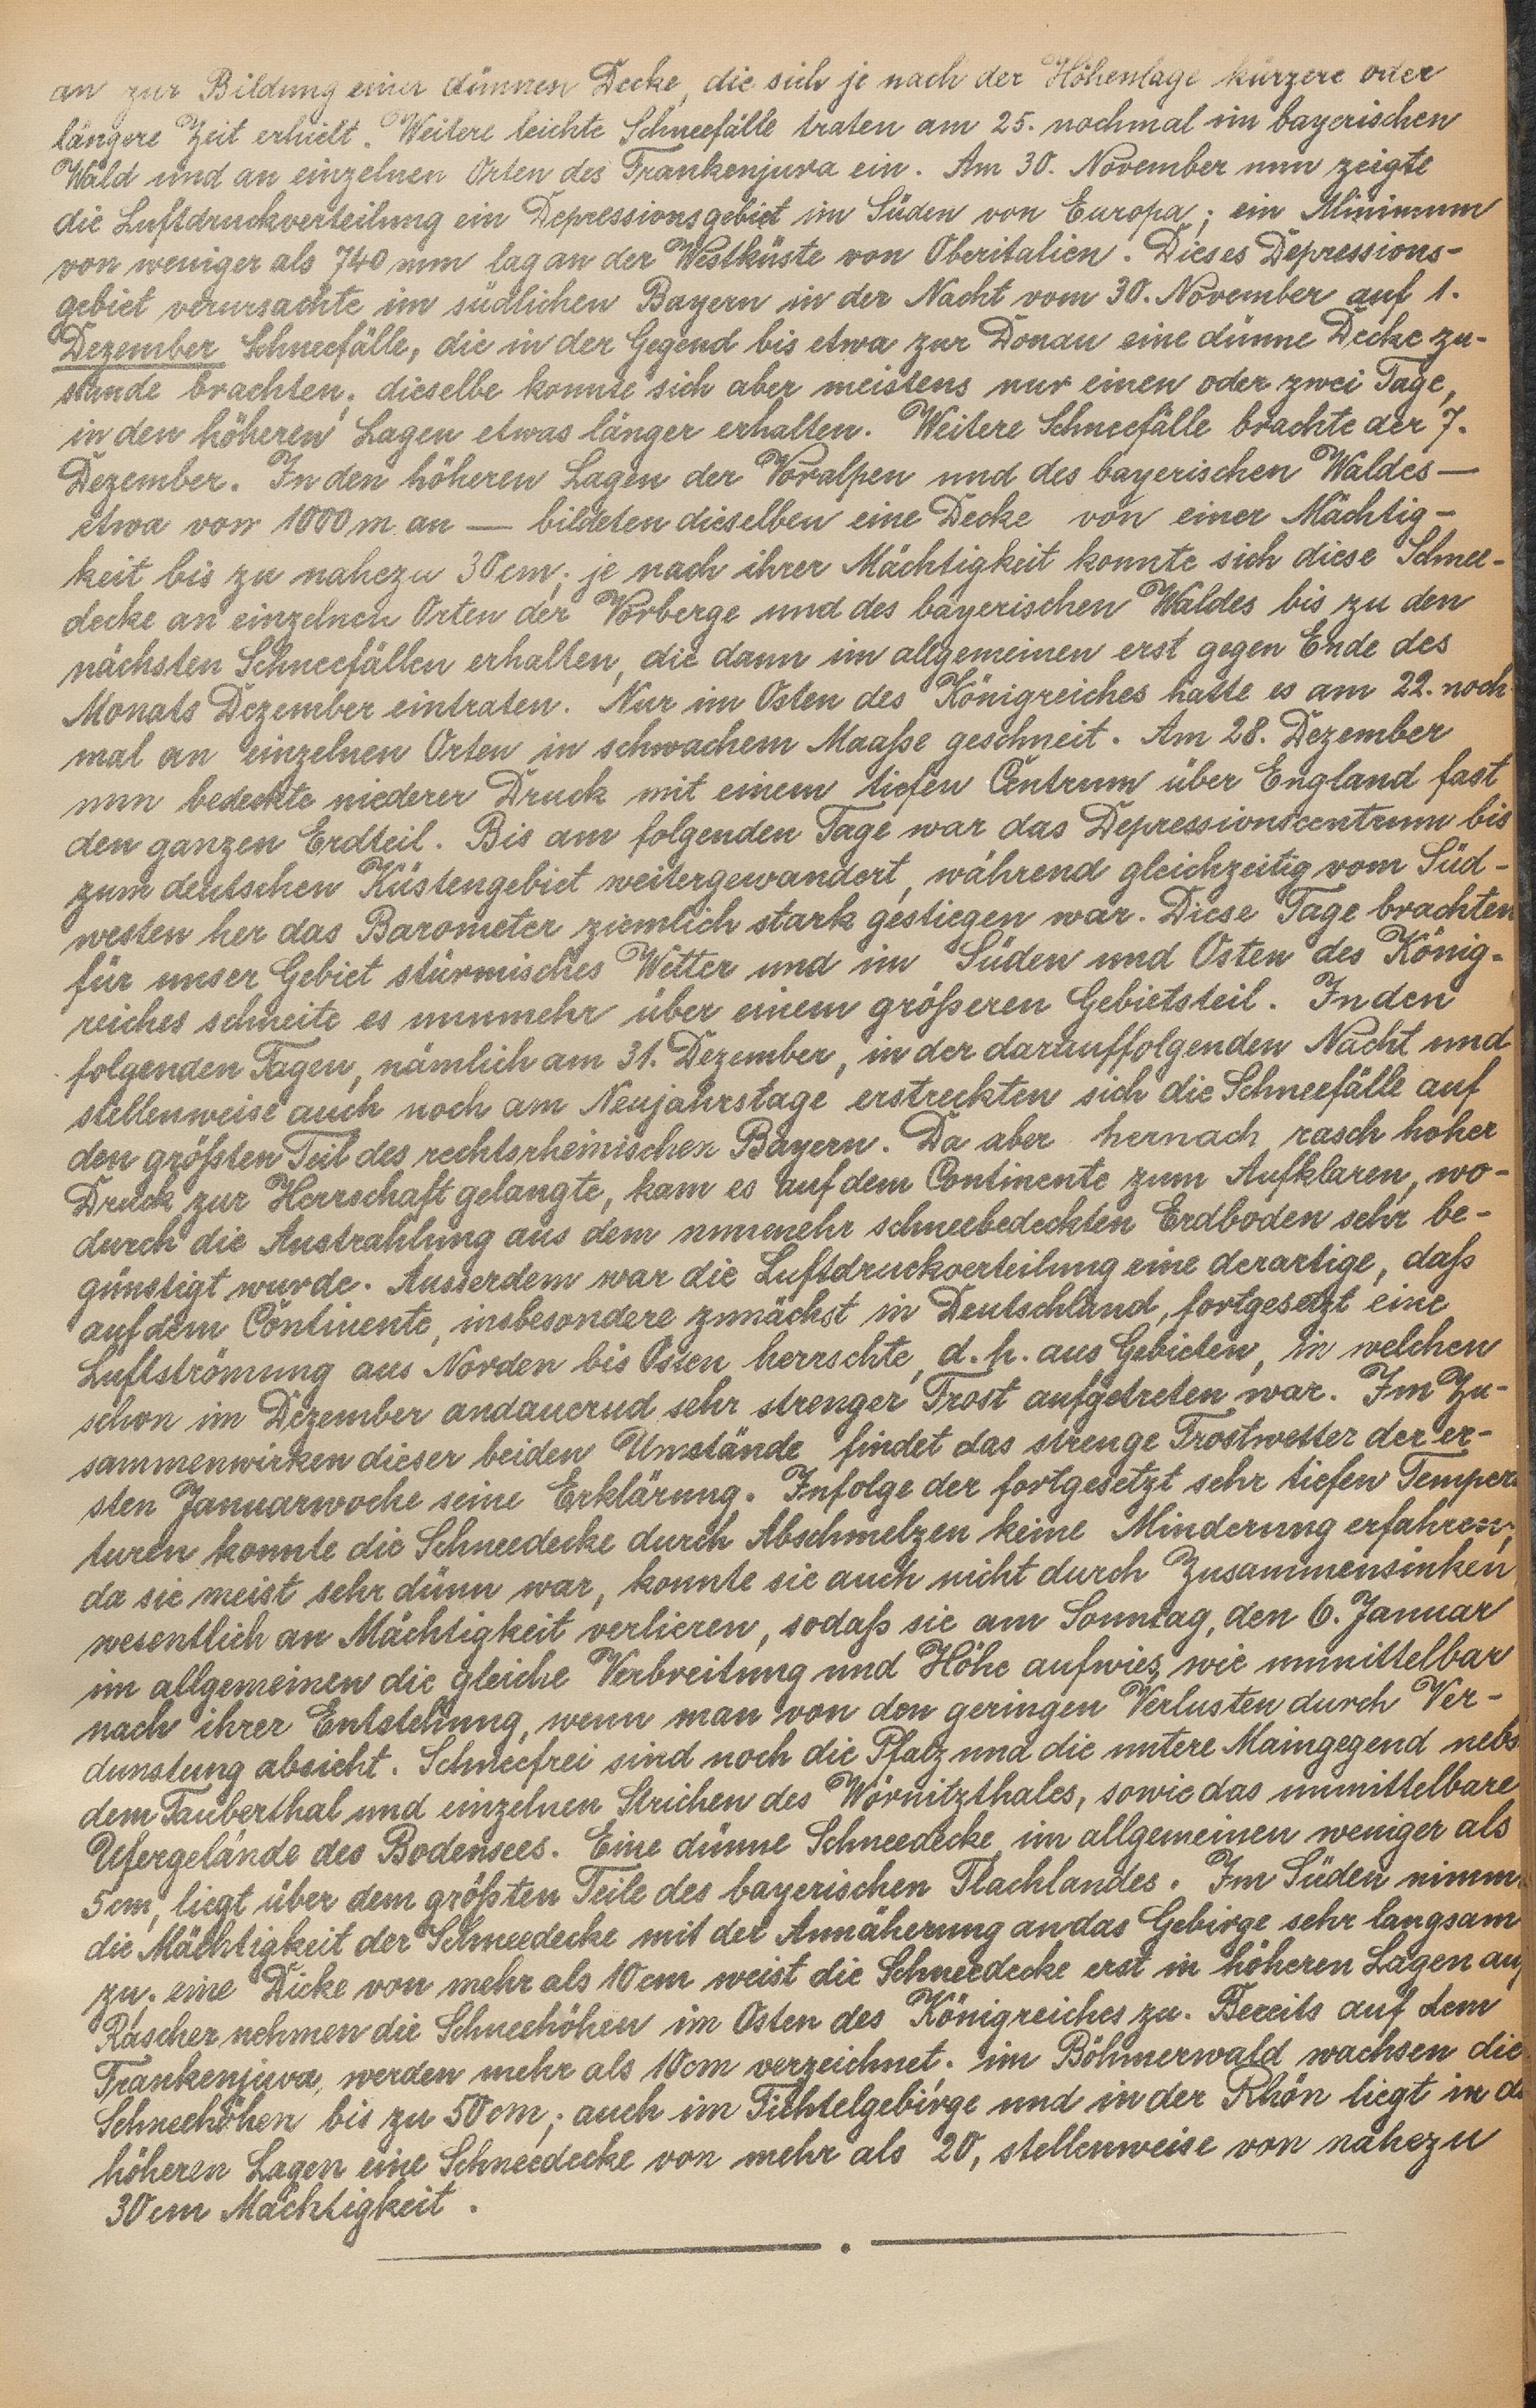 an zur Bildung einer dünnen Decke, die sich je nach der Höhenlage kürzere oder
längere Zeit erhielt. Weitere leichte Schneefälle traten am 25. nochmal im bayerischen
Wald und an einzelnen Orten des Frankenjura ein. Am 30. November nun zeigte
die Luftdruckverteilung ein Depressionsgebiet im Süden von Europa; ein Minimum
von weniger als 740 mm lag an der Westküste von Oberitalien. Dieses Depressions-
gebiet verursachte im südlichen Bayern in der Nacht vom 30. November auf 1.
Dezember Schneefälle, die in der Gegend bis etwa zur Donau eine dünne Decke zu-
stande brachten; dieselbe konnte sich aber meistens nur einen oder zwei Tage,
in den höheren Lagen etwas länger erhalten. Weitere Schneefälle brachte der 7.
Dezember. In den höheren Lagen der Voralpen und des bayerischen Waldes —
etwa von 1000 m an — bildeten dieselben eine Decke von einer Mächtig-
keit bis zu nahezu 30 cm; je nach ihrer Mächtigkeit konnte sich diese Schnee-
decke an einzelnen Orten der Vorberge und des bayerischen Waldes bis zu den
nächsten Schneefällen erhalten, die dann im allgemeinen erst gegen Ende des
Monats Dezember eintraten. Nur im Osten des Königreiches hatte es am 22. noch-
mal an einzelnen Orten in schwachem Maaße geschneit. Am 28. Dezember
nun bedeckte niederer Druck mit einem tiefen Centrum über England fast
den ganzen Erdteil. Bis am folgenden Tage war das Depressionscentrum bis
zum deutschen Küstengebiet weitergewandert, während gleichzeitig vom Süd-
westen her das Barometer ziemlich stark gestiegen war. Diese Tage brachten
für unser Gebiet stürmisches Wetter und im Süden und Osten des König-
reiches schneite es nunmehr über einem größeren Gebietsteil. In den
folgenden Tagen, nämlich am 31. Dezember, in der darauffolgenden Nacht und
stellenweise auch noch am Neujahrstage erstreckten sich die Schneefälle auf
den größten Teil des rechtsrheinischen Bayern. Da aber hernach rasch hoher
Druck zur Herrschaft gelangte, kam es auf dem Continente zum Aufklaren, wo-
durch die Austrahlung aus dem nunmehr schneebedeckten Erdboden sehr be-
günstigt wurde. Ausserdem war die Luftdruckverteilung eine derartige, daß
auf dem Continente, insbesondere zunächst in Deutschland, fortgesetzt eine
Luftströmung aus Norden bis Osten herrschte, d. h. aus Gebieten, in welchen
schon im Dezember andauernd sehr strenger Frost aufgetreten war. Im Zu-
sammenwirken dieser beiden Umstände findet das strenge Frostwetter der er-
sten Januarwoche seine Erklärung. Infolge der fortgesetzt sehr tiefen Tempera
turen konnte die Schneedecke durch Abschmelzen keine Minderung erfahren;
da sie meist sehr dünn war, konnte sie auch nicht durch Zusammensinken
wesentlich an Mächtigkeit verlieren, sodaß sie am Sonntag, den 6. Januar
im allgemeinen die gleiche Verbreitung und Höhe aufwies, wie unmittelbar
nach ihrer Entstehung, wenn man von den geringen Verlusten durch Ver-
dunstung absieht. Schneefrei sind noch die Pfalz und die untere Maingegend nebs
dem Tauberthal und einzelnen Strichen des Wörnitzthales, sowie das unmittelbare
Ufergelände des Bodensees. Eine dünne Schneedecke, im allgemeinen weniger als
5 cm, liegt über dem größten Teile des bayerischen Flachlandes. Im Süden nimm
die Mächtigkeit der Schneedecke mit der Annäherung an das Gebirge sehr langsam
zu; eine Dicke von mehr als 10 cm weist die Schneedecke erst in höheren Lagen auf
Rascher nehmen die Schneehöhen im Osten des Königreiches zu. Bereits auf dem
Frankenjura werden mehr als 10 cm verzeichnet; im Böhmerwald wachsen die
Schneehöhen bis zu 50 cm; auch im Fichtelgebirge und in der Rhön liegt in de
höheren Lagen eine Schneedecke von mehr als 20, stellenweise von nahezu
30 cm Mächtigkeit.